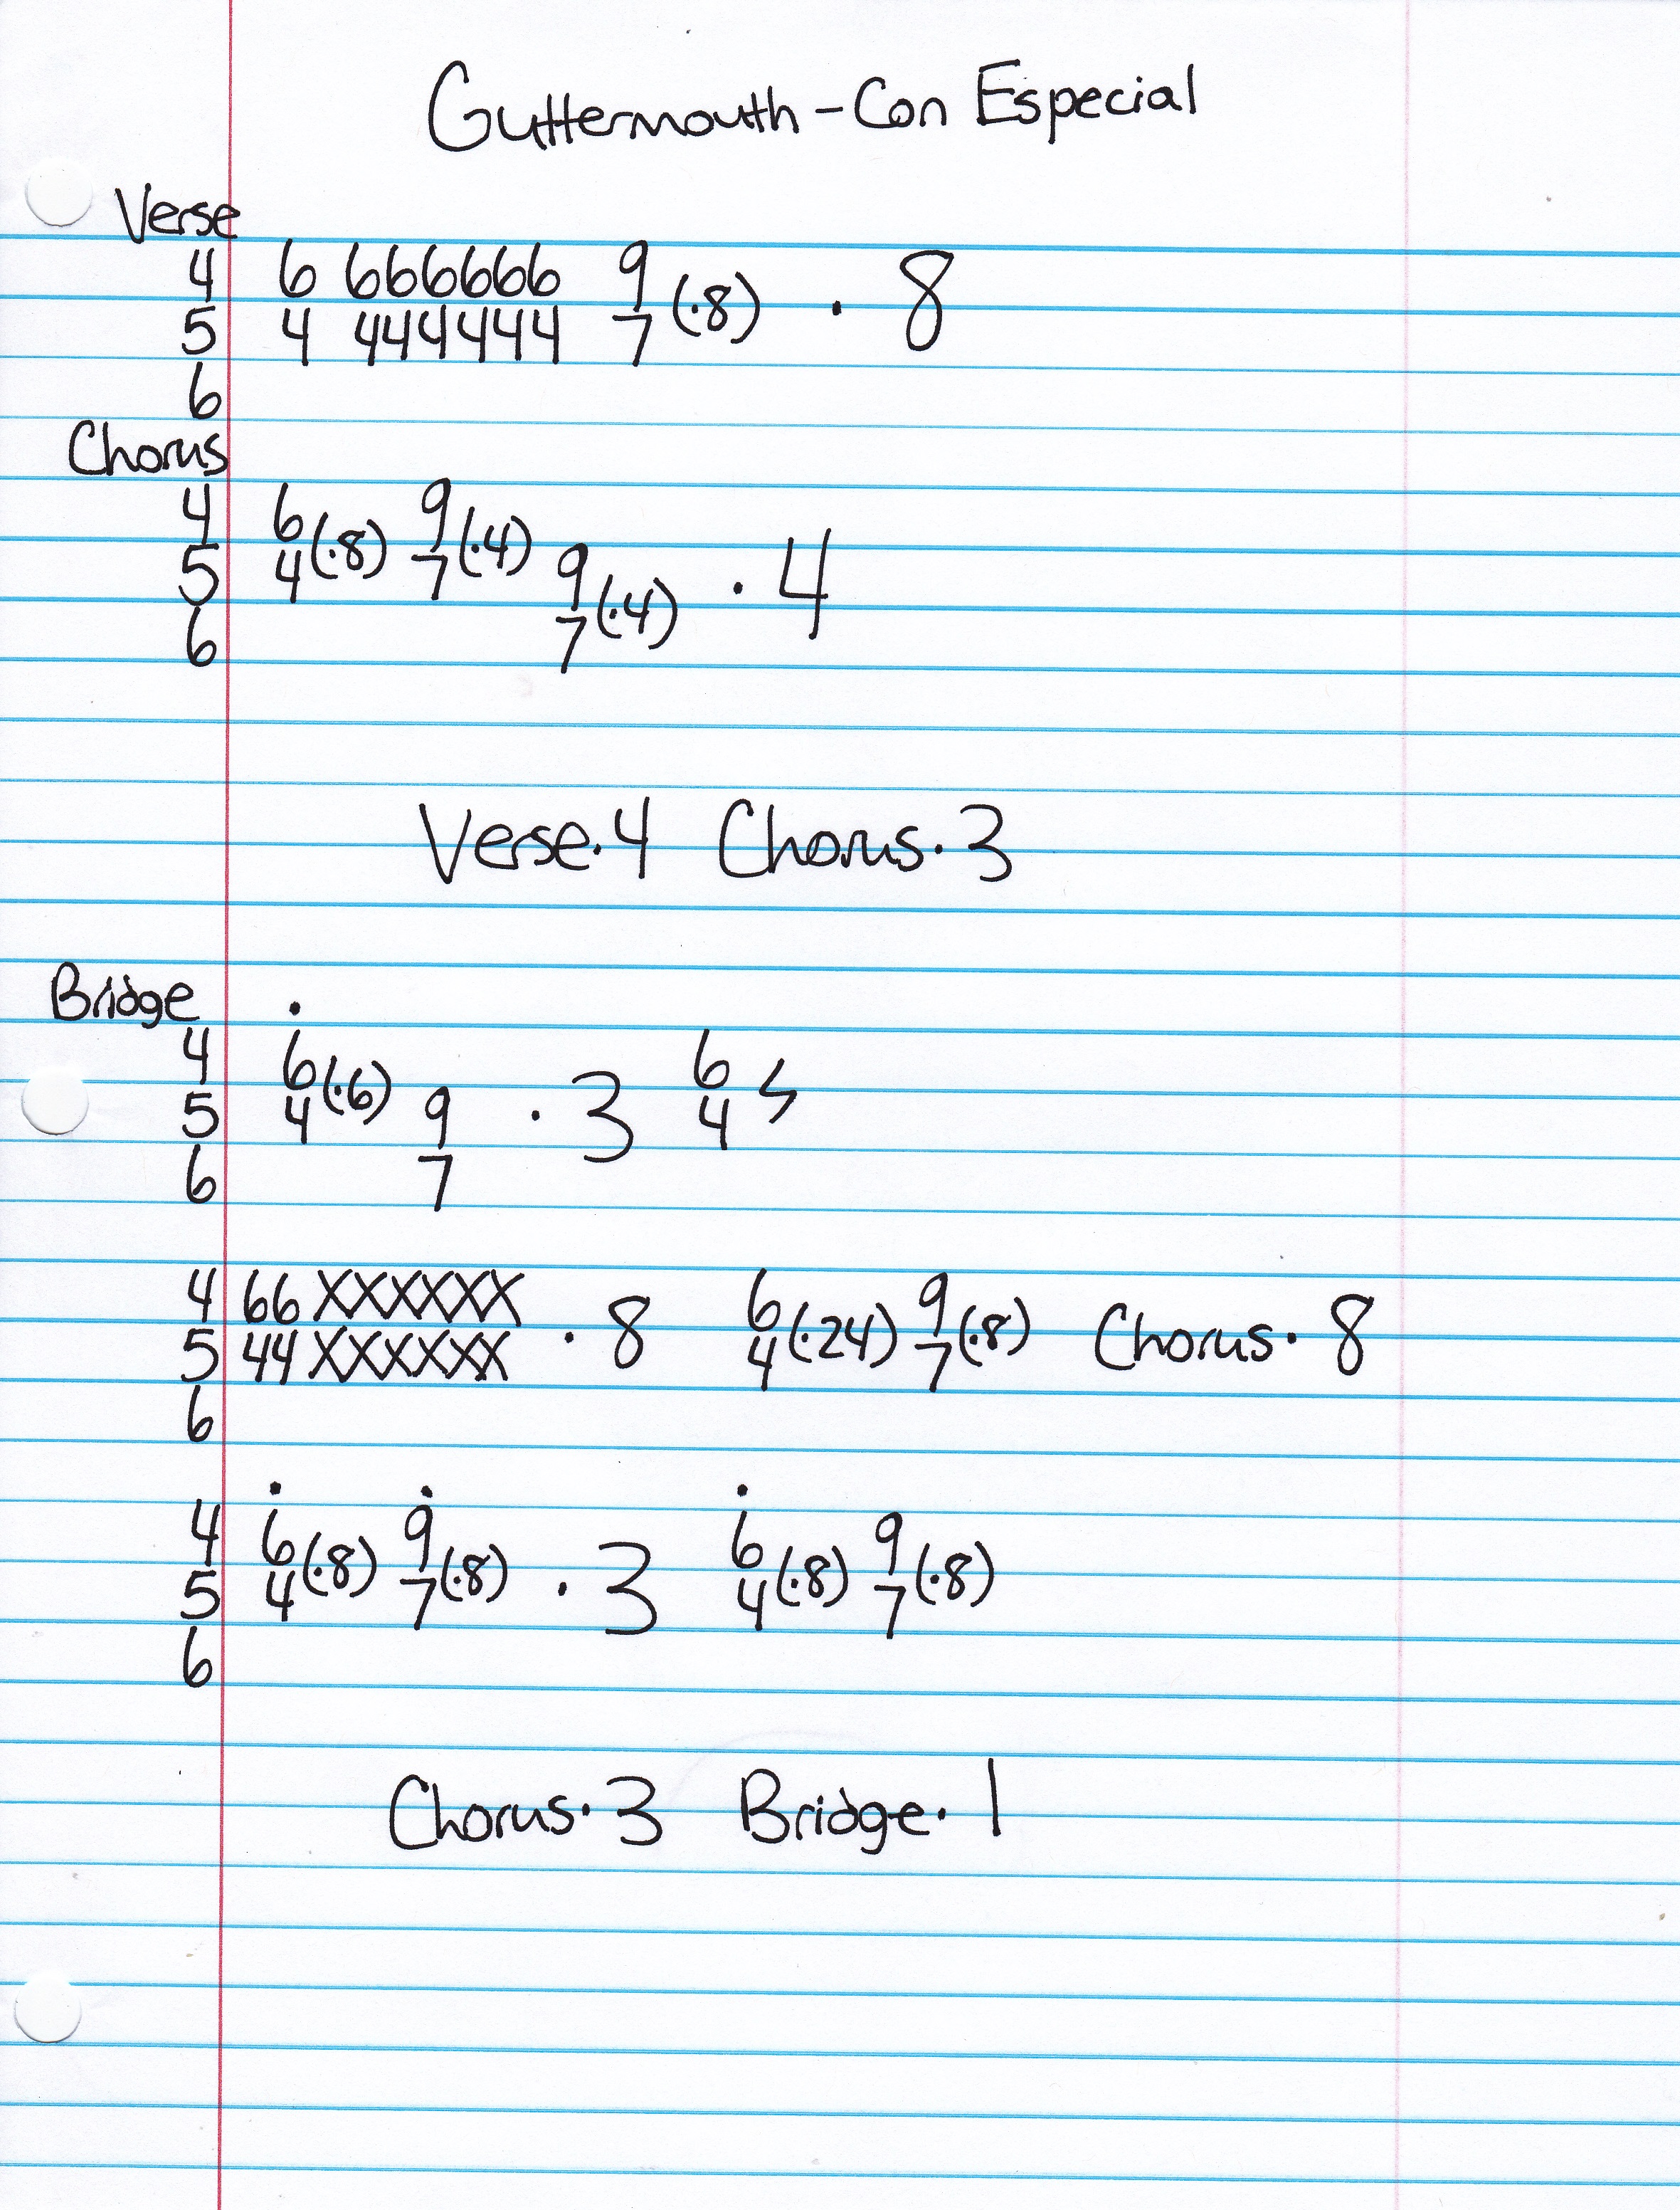 Guttermouth - Con Especial
Verse
4 6 666666 9
5 4 444444 7 (·8) · 8
6
Chorus
4 6 9
5 4(·8) 7(·4) 9 · 4
6 7(·4)
Verse·4 Chorus·3
Bridge ·
4 6 6
5 4(·6) 9 · 3 4 ϟ
6 7
4 66 XXXXXX 6 9
5 44 XXXXXX · 8 4(·24) 7(·8) Chorus· 8
6
· · ·
4 6 9 6 9
5 4(·8) 7(·8) · 3 4(·8) 7(·8)
6
Chorus·3 Bridge·1